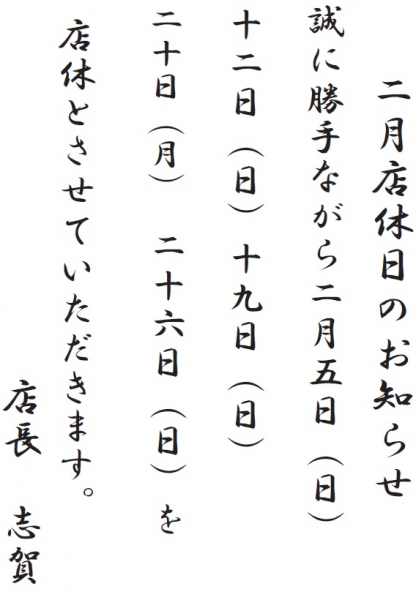 二月店休日のお知らせ
誠に勝手ながら二月五日（日）
十二日（日）十九日（日）
二十日（月） 二十六日（日）を
店休とさせていただきます。
店長 志賀